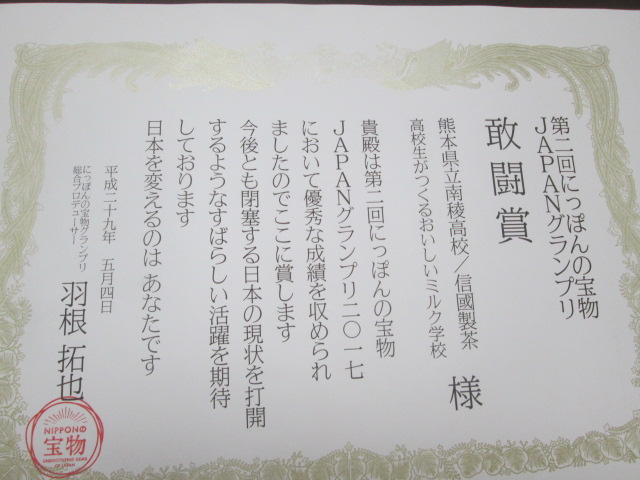 第二回にっぽんの宝物
JAPANグランプリ
敢闘賞
熊本県立南稜高校／信國製茶
高校生がつくるおいしいミルク学校
様
貴殿は第二回にっぽんの宝物
JAPANグランプリ二〇一七
において優秀な成績を収められ
ましたのでここに賞します
今後とも閉塞する日本の現状を打開
するようなすばらしい活躍を期待
しております
日本を変えるのは あなたです
平成二十九年 五月四日
にっぽんの宝物グランプリ
総合プロデューサー
羽根 拓也
NIPPONの
宝物